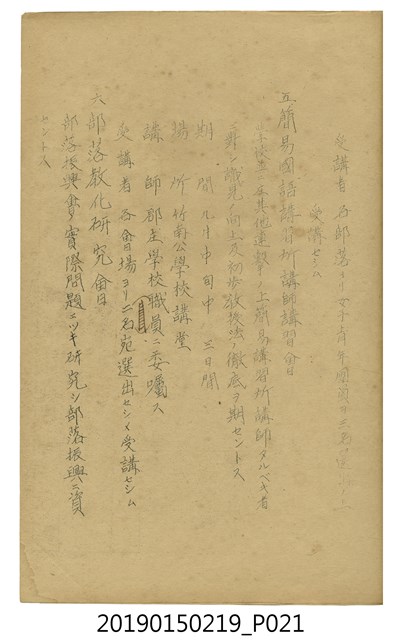 受講者 各部落ヨリ女子青年團員
受講セシム
五 簡易國語講習所講師講習會
簡易講習所講師タルベキ者
識見ノ向上及初歩教授法ノ徹底ヲ期セントス
期間 九月中旬中 三日間
場所 竹南公學校講堂
講師 郡主學校職員ニ委囑ス
受講者 各會場ヨリ一名宛選出セシメ受講セシム
六 部落教化研究會
部落振興會ノ實際問題ニツキ研究シ部落振興ニ資
セントス
20190150219_P021